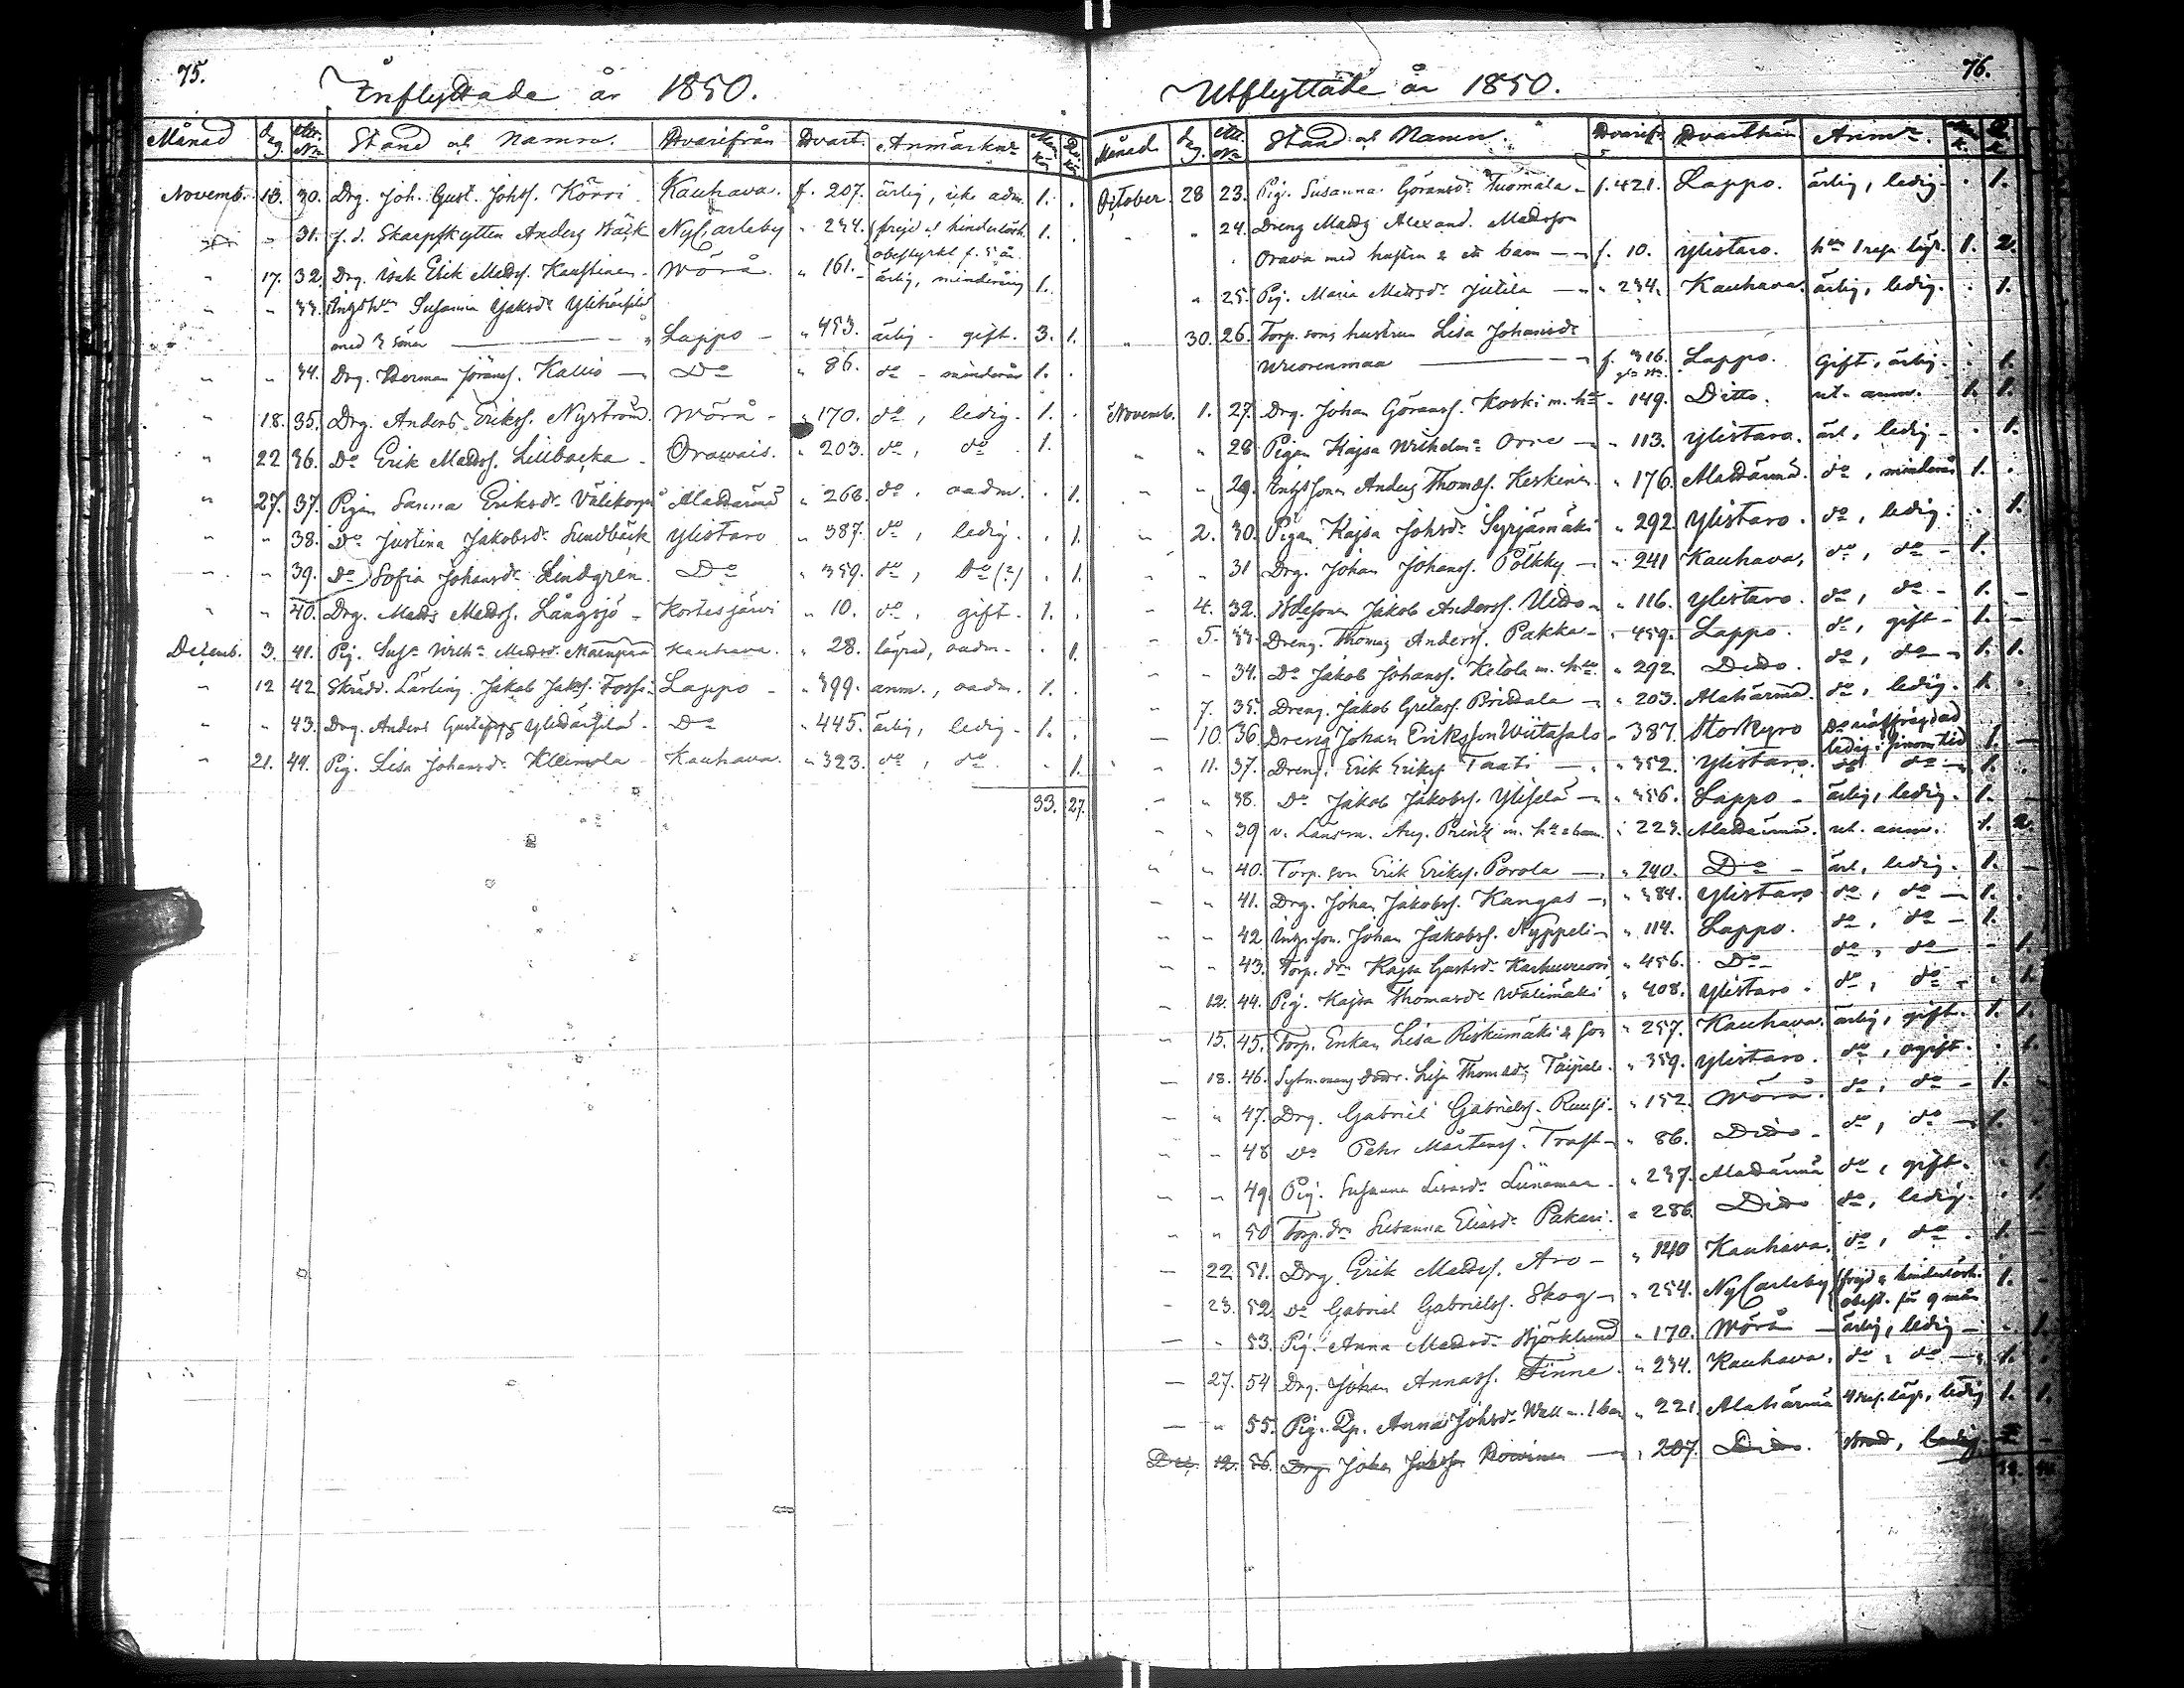 75.
Inflyttade år 1850.
Månad dag. Att. No Stånd och Namn. Hvarifrån Hvart. Anmärkn. Man kön Qv. kön
Novemb. 13. 30. Drg. Joh. Gust. Johss. Körri Kauhava. f. 207. ärlig, icke adm. 1. .
" 31. f. d. Skarpskytten Anders Bäck NyCarleby " 234. frejd o hinderlösh. 1. .
obestyrkt f. 5 år.
" 17. 32. Drg. Isak Erik Madss. Kaustinen - Wörå. " 161. ärlig, minderårig 1.
" " 33. Susanna Jaksdr Ylihärsilä
med 3 söner " Lappo - " 453. ärlig - gift. 3. 1.
" " 34. Drg. Herman Jöranss. Kallio - Do " 86. do - minderår 1. .
" 18. 35. Drg. Anders Erikss. Nyström. Wörå - " 170. do, ledig. 1. .
" 22 36. Do Erik Madss. Lillbacka - Orawais. " 203. do, do . 1.
" 27. 37. Pigan Sanna Eriksdr Välikorpi Alahärmä " 268. do . oadm. . 1.
" " 38. Do Justina Jakobsdr Sundbäck Ylistaro " 387. do, ledig. . 1.
" " 39. Do Sofia Johansdr Lindgren. Do " 359. do, Do (?) . 1.
" " 40. Drg. Matts Madss. Långsjö - Kortesjärvi " 10. do, gift. 1. .
Decemb. 3. 41. Pig. Susa Wilh. Madsdr. Mäenpää Kauhava. " 28. lägrad, oadm. . 1.
" 12 42 Skrädd. Lärling. Jakob Jakss. Fossi - Lappo - " 399. anm., oadm. 1. .
" " 43. Drg. Anders Gustafss Ylihärsilä. Do " 445. ärlig, ledig - 1. .
" 21. 44. Pig. Lisa Johansdr Kleimola Kauhava. " 323. do, do . 1.
33. 27.
76.
Utflyttade år 1850.
Månad dag. Att. No Stånd och Namn. Hvarifr. Hvarthän Anm.
October. 28 23. Pig. Susanna Göransdr Tuomala - f. 421. Lappo. ärlig, ledig. . 1.
" " 24. Dreng Matts Alexand. Madsson
Orava med hustru & ett barn - f. 10. Ylistaro. 1. 2.
" 25. Pig. Maria Mattsdr Jutila - " 234. Kauhava. ärlig, ledig. . 1.
" 30. 26. Torp. sons hustrun Lisa Johansdr
Wuorenmaa f. 316. Lappo. Gift, ärlig. . 1.
Novemb. 1. 27. Drg. Johan Göranss. Koski m. hu - 149. Ditto. ut. anm. 1. 1.
" " 28 Pigan Kajsa Wilhelms Orre - " 113. Ylistaro. ärl, ledig - . 1.
" " 29. Anders Thomass. Keskinen. " 176. Alahärmä. do, minderår 1. .
" 2. 30. Pigan Kajsa Johsdr Syrjämäki " 292 Ylistaro. do, ledig. . 1.
" " 31 Drg. Johan Johanss. Pölkky - " 241 Kauhava, do, do - 1.
" 4. 32. Jakob Anderss. Uido - " 116. Ylistaro. do, do - 1. -
- 5. 33. Dreng. Thomas Anderss. Pakka - " 459. Lappo. do, gift - 1. -
- " 34. Do Jakob Johanss. Ketola m. hu " 292 Ditto. do, do - 1. 1.
7. 35. Dreng. Jakob Gretass. - " 203. Alahärmä. do, ledig. 1. .
- 10. 36 Dreng Johan Eriksson Wiitasalo - 387. Storkyro
ledig i sinom tid 1. -
" " 11. 37. Dreng. Erik Erikss Taati - " 352. Ylistaro. do do - 1. .
- " 38. Do Jakob Jakobss. Yliselä - " 356. Lappo - ärlig, ledig. 1. -
" " 39 v. Länsm. Aug. Printz m. hu & barn. " 223. Alahärmä. ut. anm. 1. 2.
" " 40. Torp. son Erik Erikss. Porola - " 240. Do - ärl, ledig. 1. -
- " 41. Drg. Johan Jakobss. Kangas - " 384. Ylistaro do, do - 1. .
- " 42 Johan Jakobss. Nyppeli - " 114. Lappo. do, do - 1.
- " 43. Torp. dr Kajsa Gustsdr Karhuvuori " 456. Do - do, do - 1.
- 12. 44. Pig. Kajsa Thomasdr Wälimäki " 408. Ylistaro. do, do - . 1.
" 15. 45. Torp. Enkan Lisa Riskumäki & son " 257. Kauhava. ärlig, gift. 1. 1.
- 18. 46. Lisa Thomasdr Taipale. " 359. Ylistaro. do, ogift. . 1.
- " 47. Drg. Gabriel Gabrielss. Ruusi. " 152. Wörå. do, do - 1.
- " 48 Do Pehr Mårtenss. Trast - " 86. Ditto - do, do - 1.
" " 49. Pig. Susanna Liinamaa - " 237. Alahärmä do, gift. - 1.
" " 50 Torp. dr Susanna Eliasdr Pakari. " 286 Ditto do, ledig. . 1.
- 22 51. Drg. Erik Madss. Aro - " 140 Kauhava. do, do . 1. -
- 23. 52 Do Gabriel Gabrielss. Skog - " 254. NyCarleby frejd & hinderlösh. 1. -
obest. för 9 mån
- " 53. Pig. Anna Madsdr Björklund " 170. Wörå - ärlig, ledig - . 1.
- 27. 54 Drg. Johan Annass. Finne. " 234. Kauhava. do, do - 1. .
- " 55. Pig. Qp. Anna Johsdr Wall m. 1 barn " 221. Alahärmä ledig 1. 1.
Dec. 12. 56. Drg. Johan - " 207. Ditto. ledig